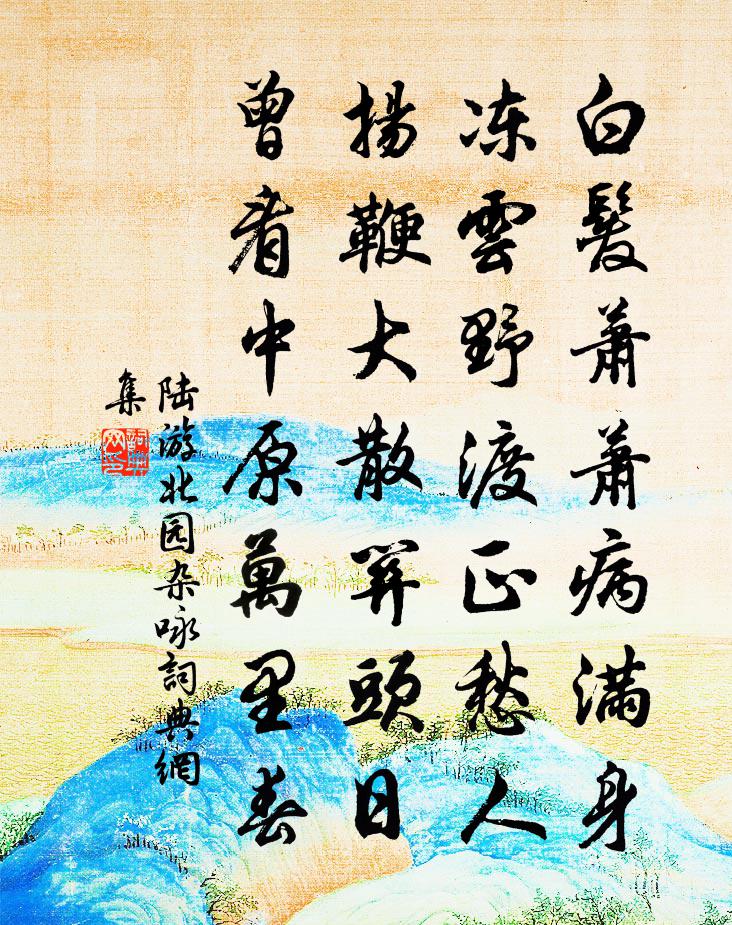 白髮蕭蕭病滿身
冻雲野渡正愁人
揚鞭大散關頭日
曾看中原萬里春
陆游北园杂咏詞典網
集